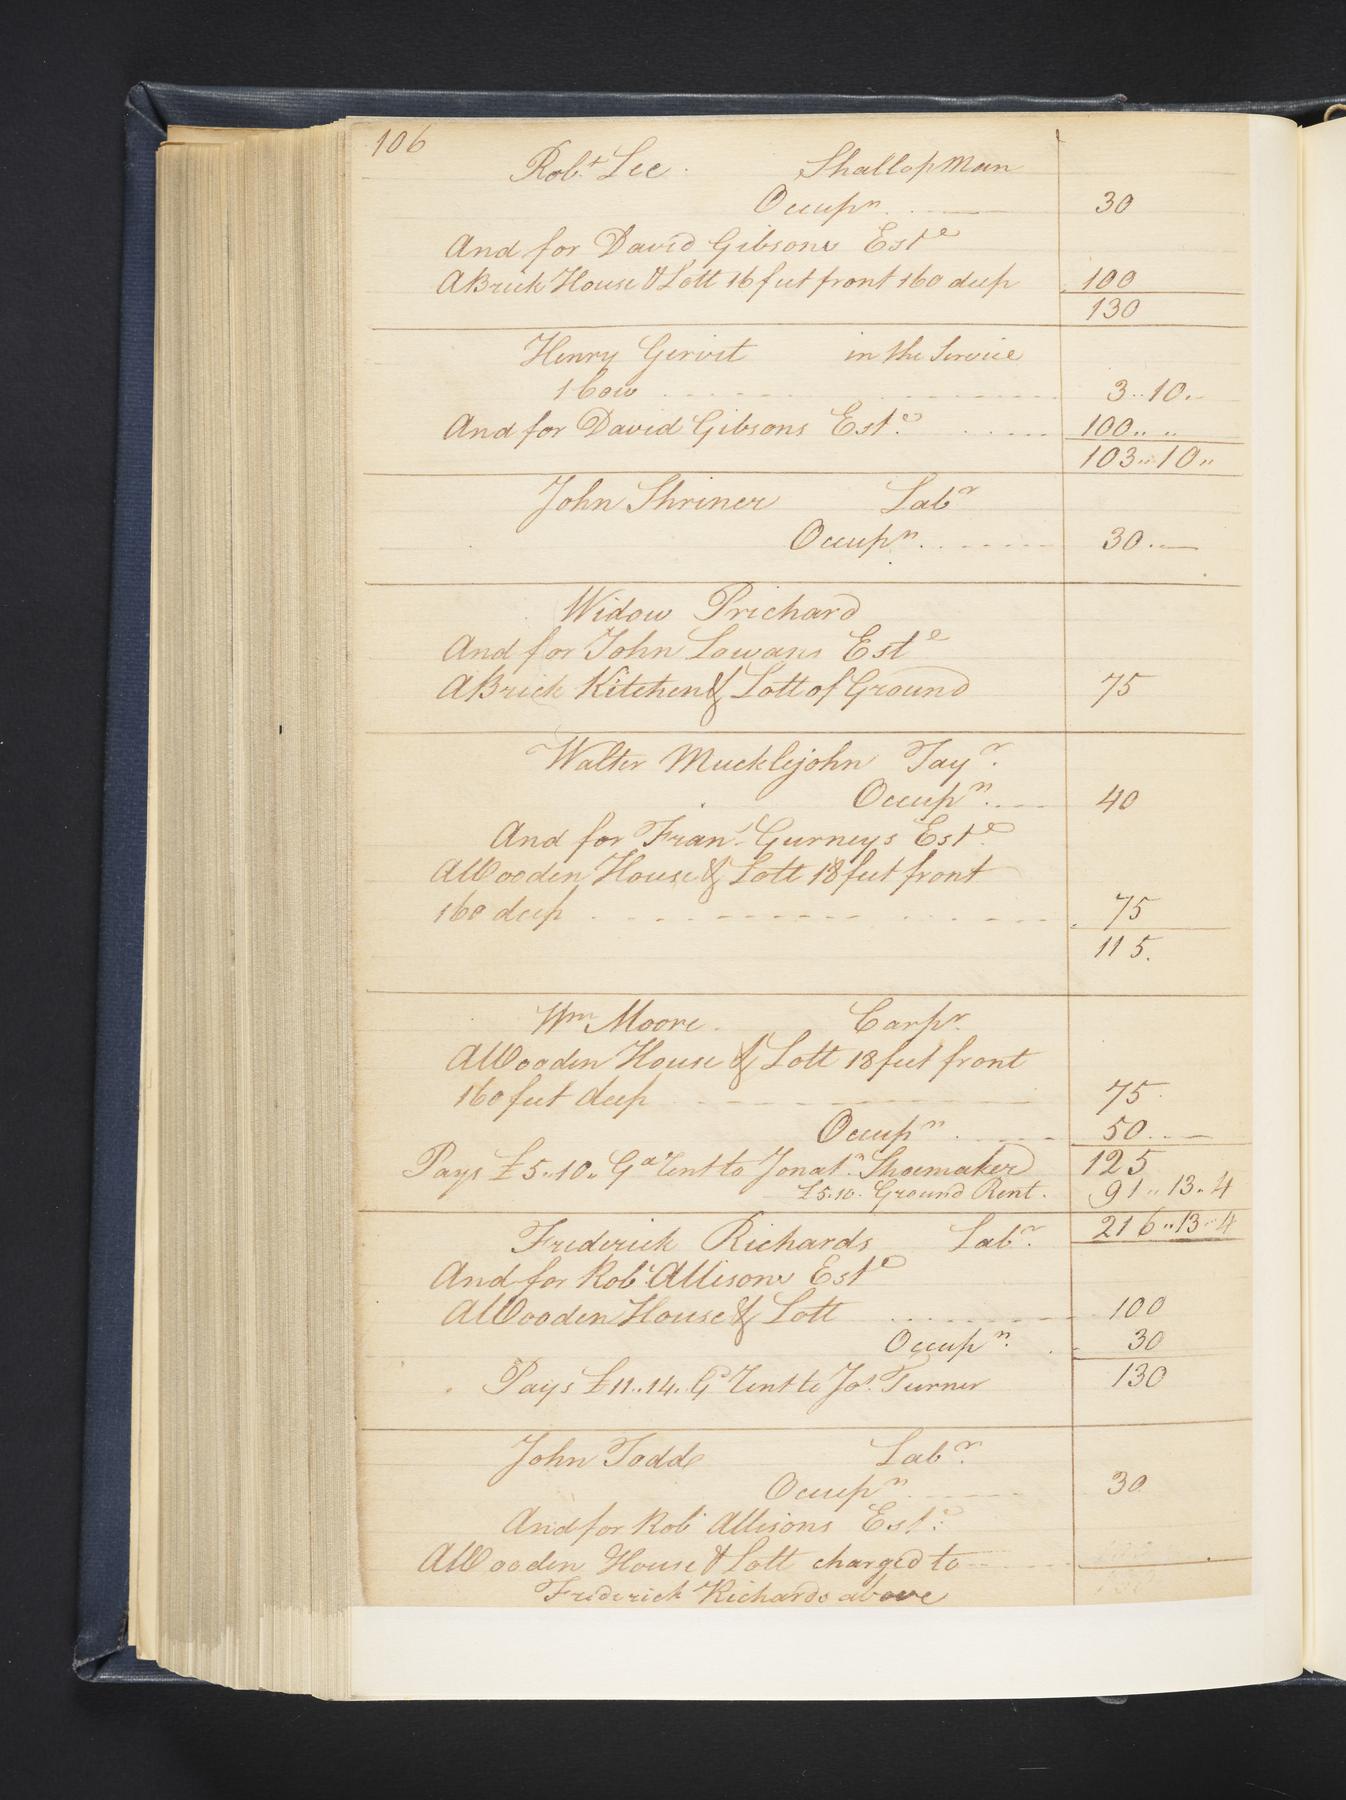 106
Robt Lee Shallop Man
Occupn 30
And for David Gibsons Este
A Brick House & Lott 16 feet front 160 deep 100
130
Henry Gervit in the Service
1 Cow 3..10..
And for David Gibsons Este 100.. ..
103..10..
John Shriner Labr
Occupn 30
Widow Prichard
And for John Lowans Este
A Brick Kitchen & Lott of Ground 75
Walter Mucklejohn Tayr
Occupn 40
And for Frans Gurneys Este
A Wooden House & Lott 18 feet front
160 deep 75
115.
Wm Moore Carpr
A Wooden House & Lott 18 feet front
160 feet deep 75
Occupn 50
Pays £5..10.. Gd Rent to Jonatn Shoemaker 125
£5.10. Ground Rent. 91..13..4
216..13..4
Frederick Richards Labr
And for Robt Allisons Este
A Wooden House & Lott 100
Occupn 30
Pays £11..14.. Gd Rent to Jos Turner 130
John Todd Labr
Occupn 30
And for Robt Allisons Este
A Wooden House & Lott charged to
Frederick Richards above